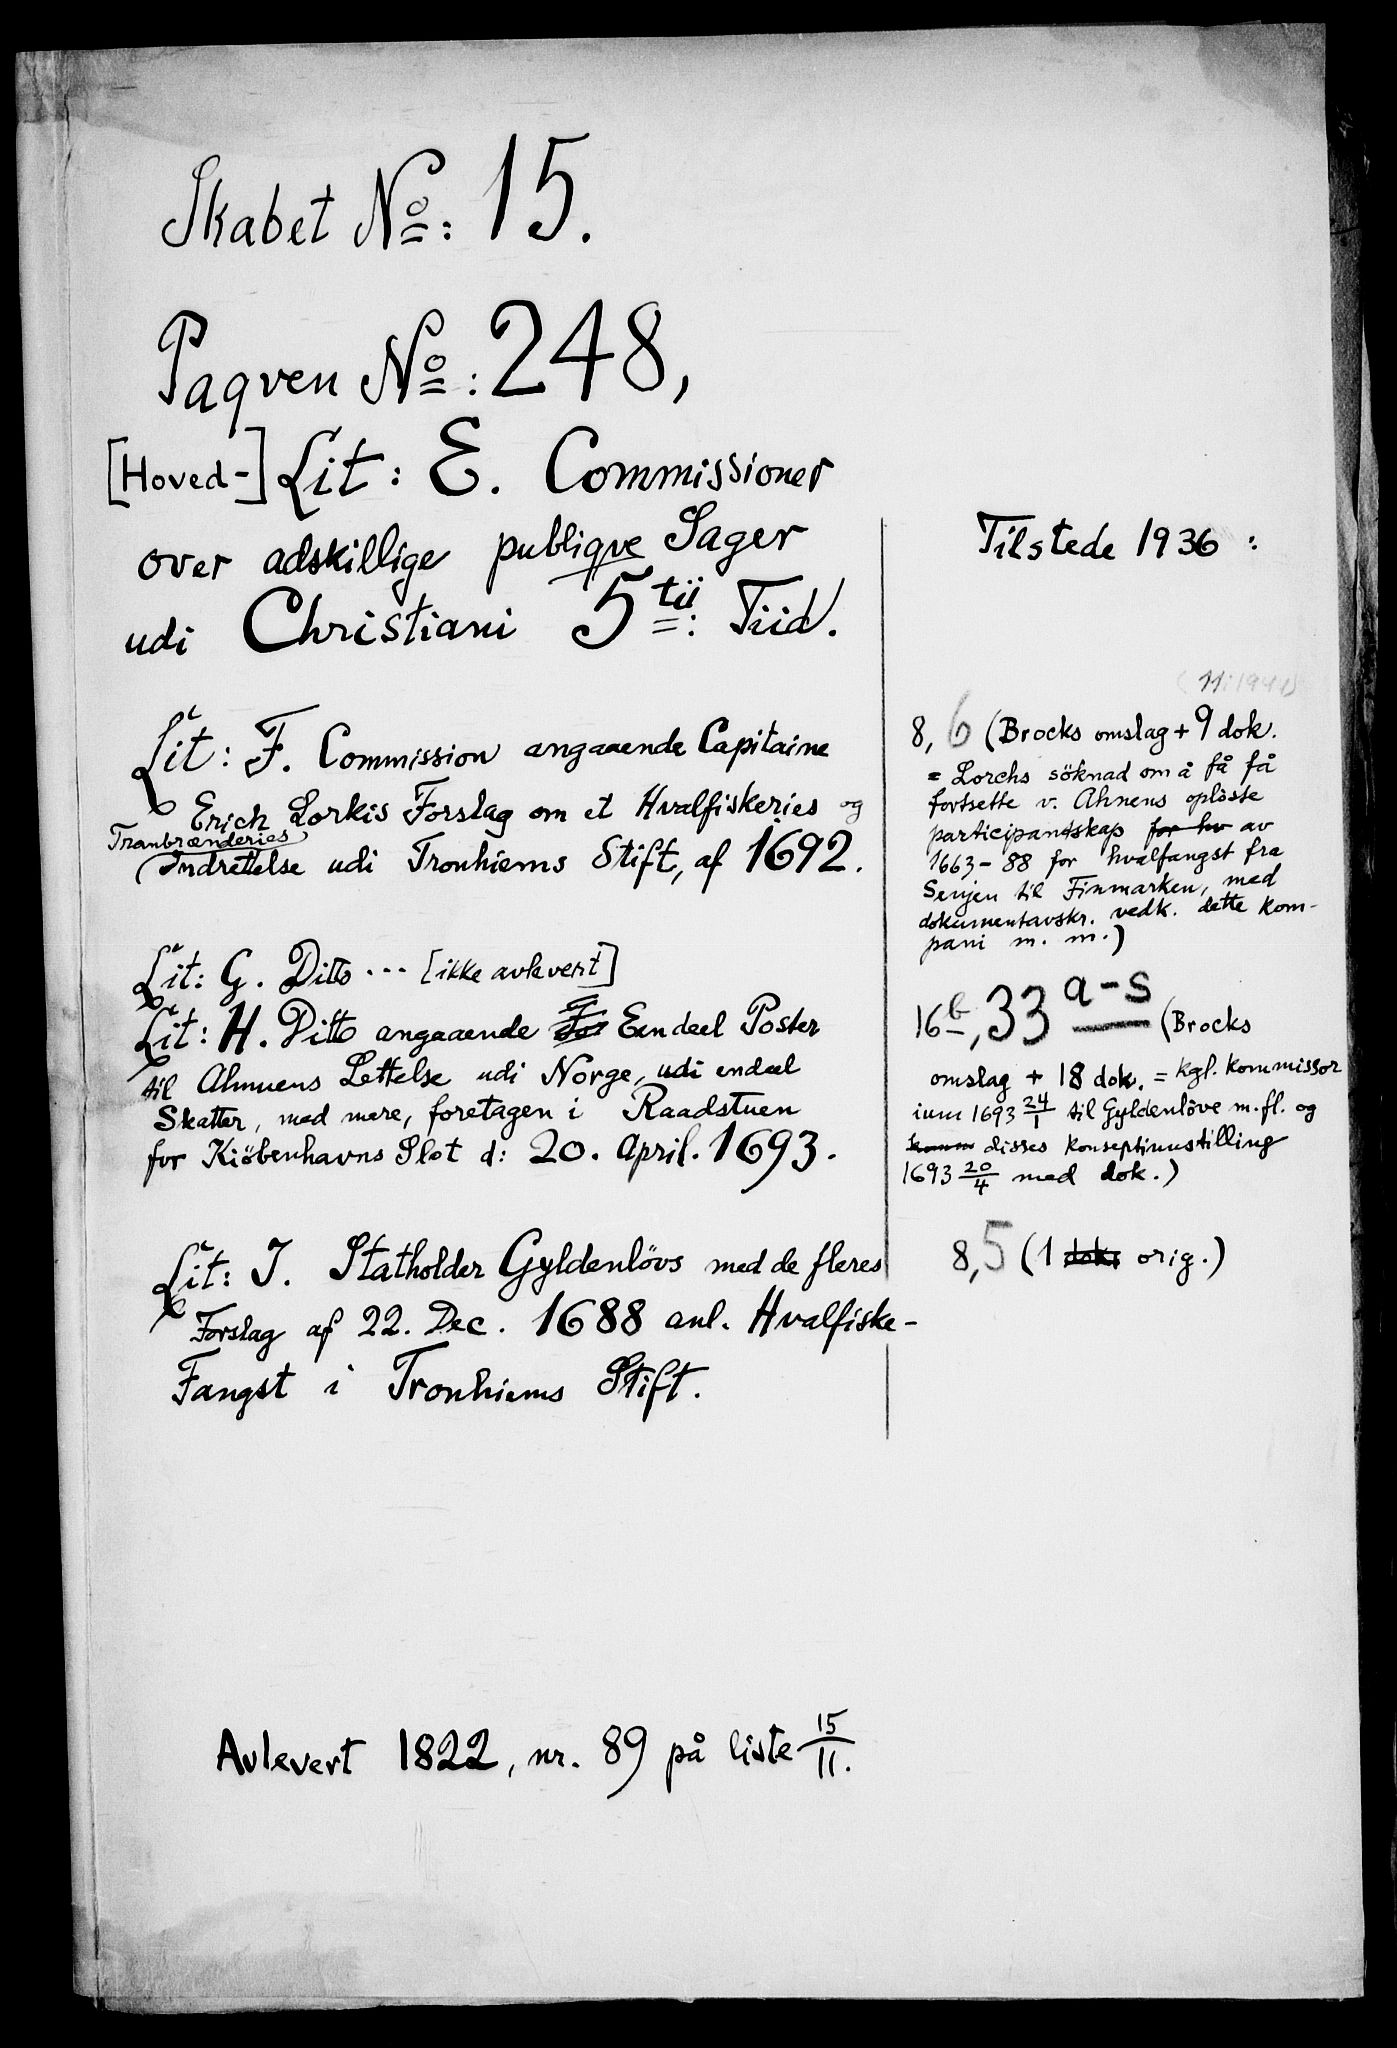 Skabet No: 15.
Paqven No: 248,
[Hoved-] Lit: E. Commissioner
over adskillige publiqve Sager
udi Christiani 5tii: Tiid.
Tilstede 1936:
Lit: F. Commission angaaende Capitaine
Erich Lorkis Forslag om et Hvalfiskeries og
Tranbrænderies
Indrettelse udi Tronhiems Stift, af 1692.
8,6 (Brocks omslag + 9 dok.
= Lorchs söknad om å få få
fortsette v. Ahnens oplöste
participantskap for hv av
1663-88 for hvalfangst fra
Senjen til Finmarken, med
dokumentavskr. vedk. dette kom-
pani m. m.)
Lit: G. Ditto ... [ikke avlevert]
Lit: H. Ditto angaaende Een deel Poster
til Almuens Lettelse udi Norge, udi endeel
Skatter, med mere, foretagen i Raadstuen
for Kiöbenhavns Slot d: 20. April. 1693.
16b, 33 a-s (Brocks
omslag + 18 dok. = kgl. kommissor
ium 1693 24/1 til Gyldenlöve m.fl. og
disses konseptinnstilling
1693 20/4 med dok.)
Lit: I. Statholder Gyldenlövs med de fleres
Forslag af 22. Dec. 1688 anl. Hvalfiske-
Fangst i Tronhiems Stift.
8,5 (1 dok. orig.)
Avlevert 1822, nr. 89 på liste 15/11.